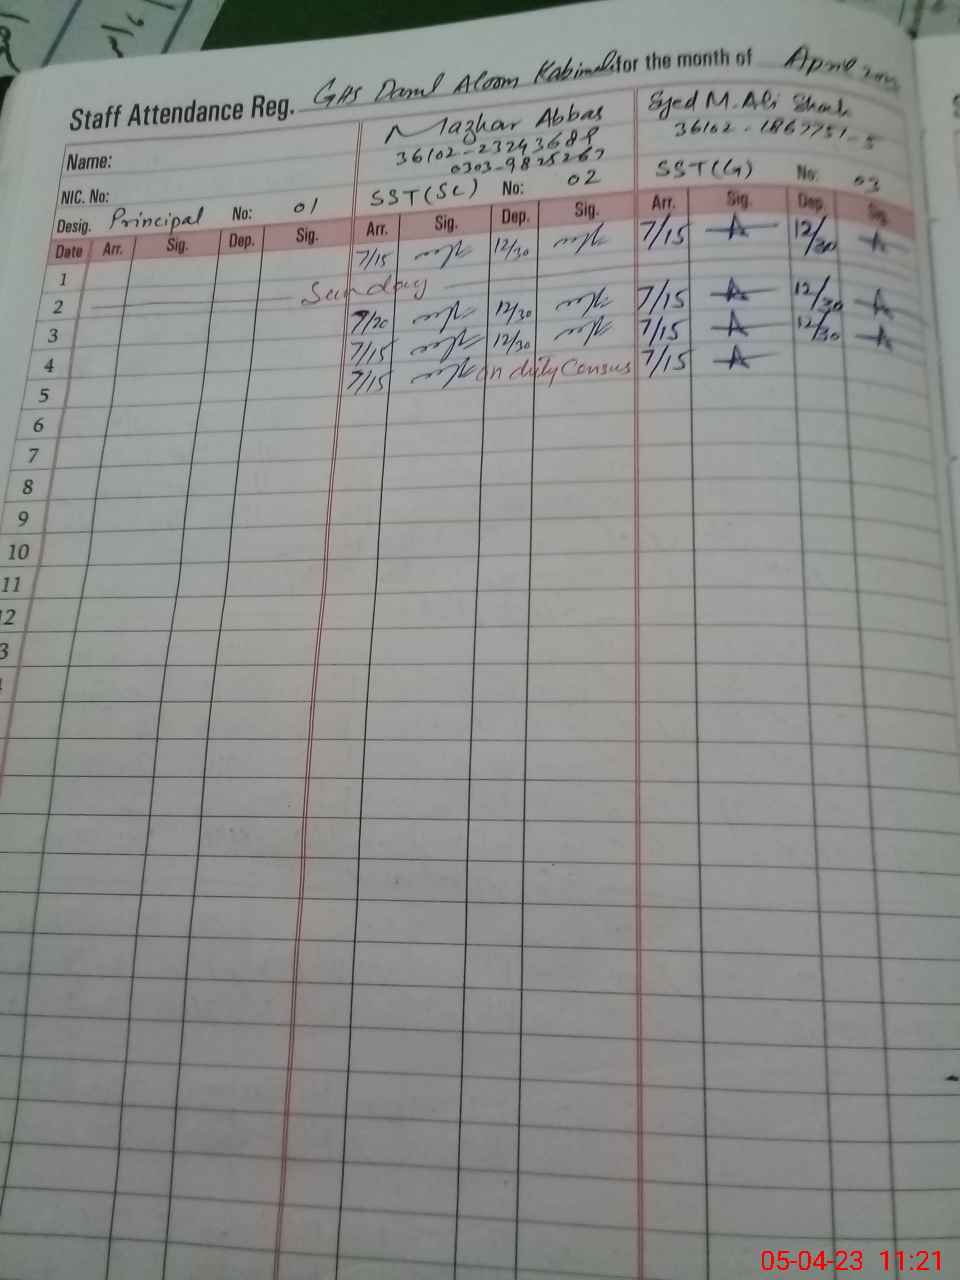 Staff Attendance Reg. GHS Darul Aloom Kabirwala for the month of April
Name: Mazhar Abbas Syed M. Ali Shah
36102-2324368-9 36102-1867751-5
NIC. No: 0303-9825267
Desig. Principal No: 01 SST(SC) No: 02 SST(G) No: 03
Date Arr. Sig. Dep. Sig. Arr. Sig. Dep. Sig. Arr. Sig. Dep. Sig.
1 7/15 12/30 7/15 12/30
2 Sunday
3 7/20 12/30 7/15 12/30
4 7/15 12/30 7/15 12/30
5 7/15 on duty Census 7/15
6
7
8
9
10
11
12
3
05-04-23 11:21